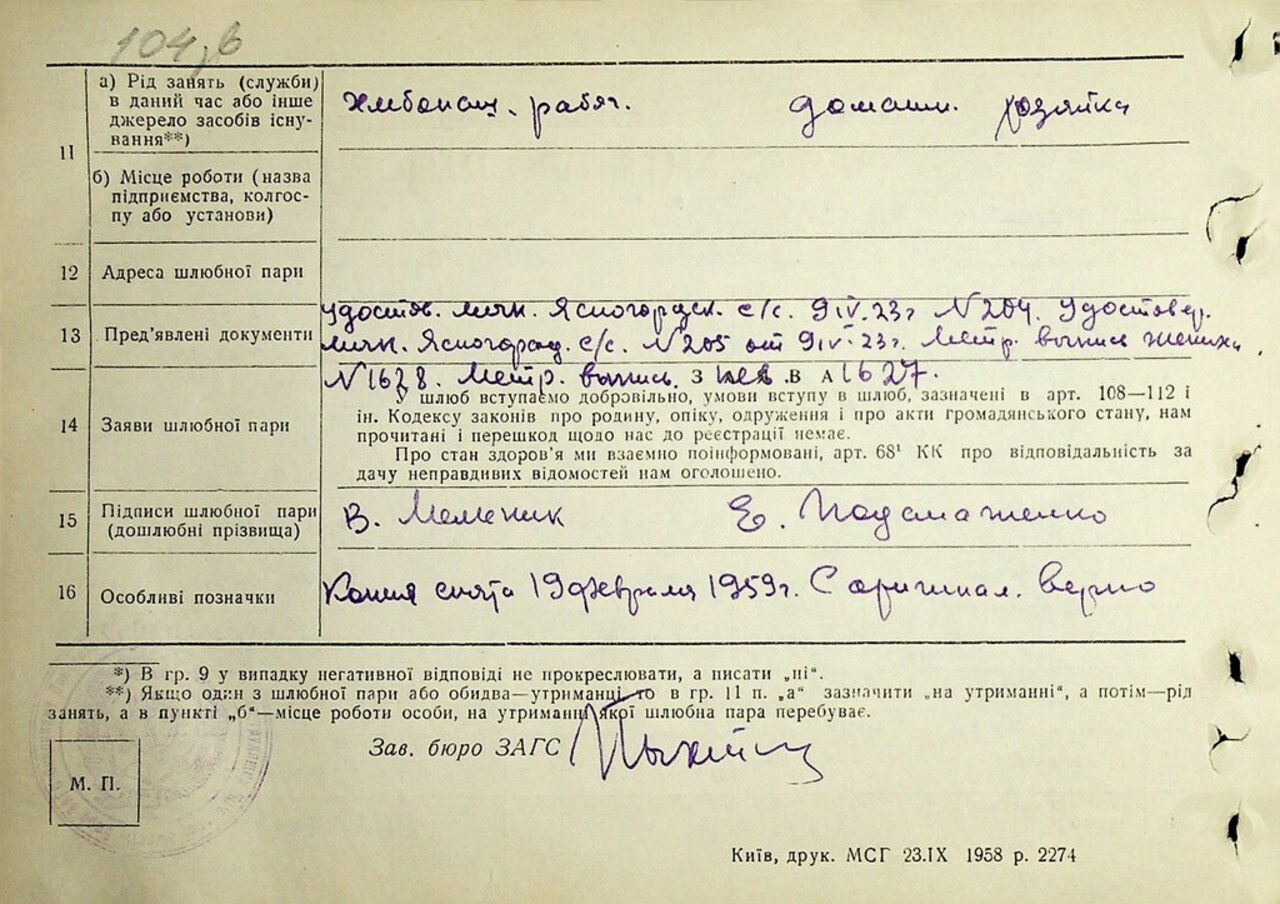 104,в
11
а) Рід занять (служби)
в даний час або інше
джерело засобів існу-
вання**)
хлебопаш. рабоч. домашн. хозяйка
б) Місце роботи (назва
підприємства, колгос-
пу або установи)
12 Адреса шлюбної пари
13 Пред'явлені документи
удостов. личн. Ясногородск. с/с. 9 IV. 23 г N 204. Удостовер.
личн. Ясногород. с/с. N 205 от 9 IV-23 г. Метр. выпись жениха
N 1628. Метр. выпись. З нев .В А 1627.
14 Заяви шлюбної пари
У шлюб вступаємо добровільно, умови вступу в шлюб, зазначені в арт. 108—112 і
ін. Кодексу законів про родину, опіку, одруження і про акти громадянського стану, нам
прочитані і перешкод щодо нас до реєстрації немає.
Про стан здоров'я ми взаємно поінформовані, арт. 68¹ КК про відповідальність за
дачу неправдивих відомостей нам оголошено.
15 Підписи шлюбної пари
(дошлюбні прізвища)
В. Мельник Е. Подсмаженко
16 Особливі позначки
Копия снята 19 февраля 1959 г. С оригинал. верно
*) В гр. 9 у випадку негативної відповіді не прокреслювати, а писати „ні“.
**) Якщо один з шлюбної пари або обидва—утриманці, то в гр. 11 п. „а“ зазначити „на утриманні“, а потім—рід
занять, а в пункті „б“—місце роботи особи, на утриманні якої шлюбна пара перебуває.
Зав. бюро ЗАГС
М. П.
Київ, друк. МСГ 23.IX 1958 р. 2274